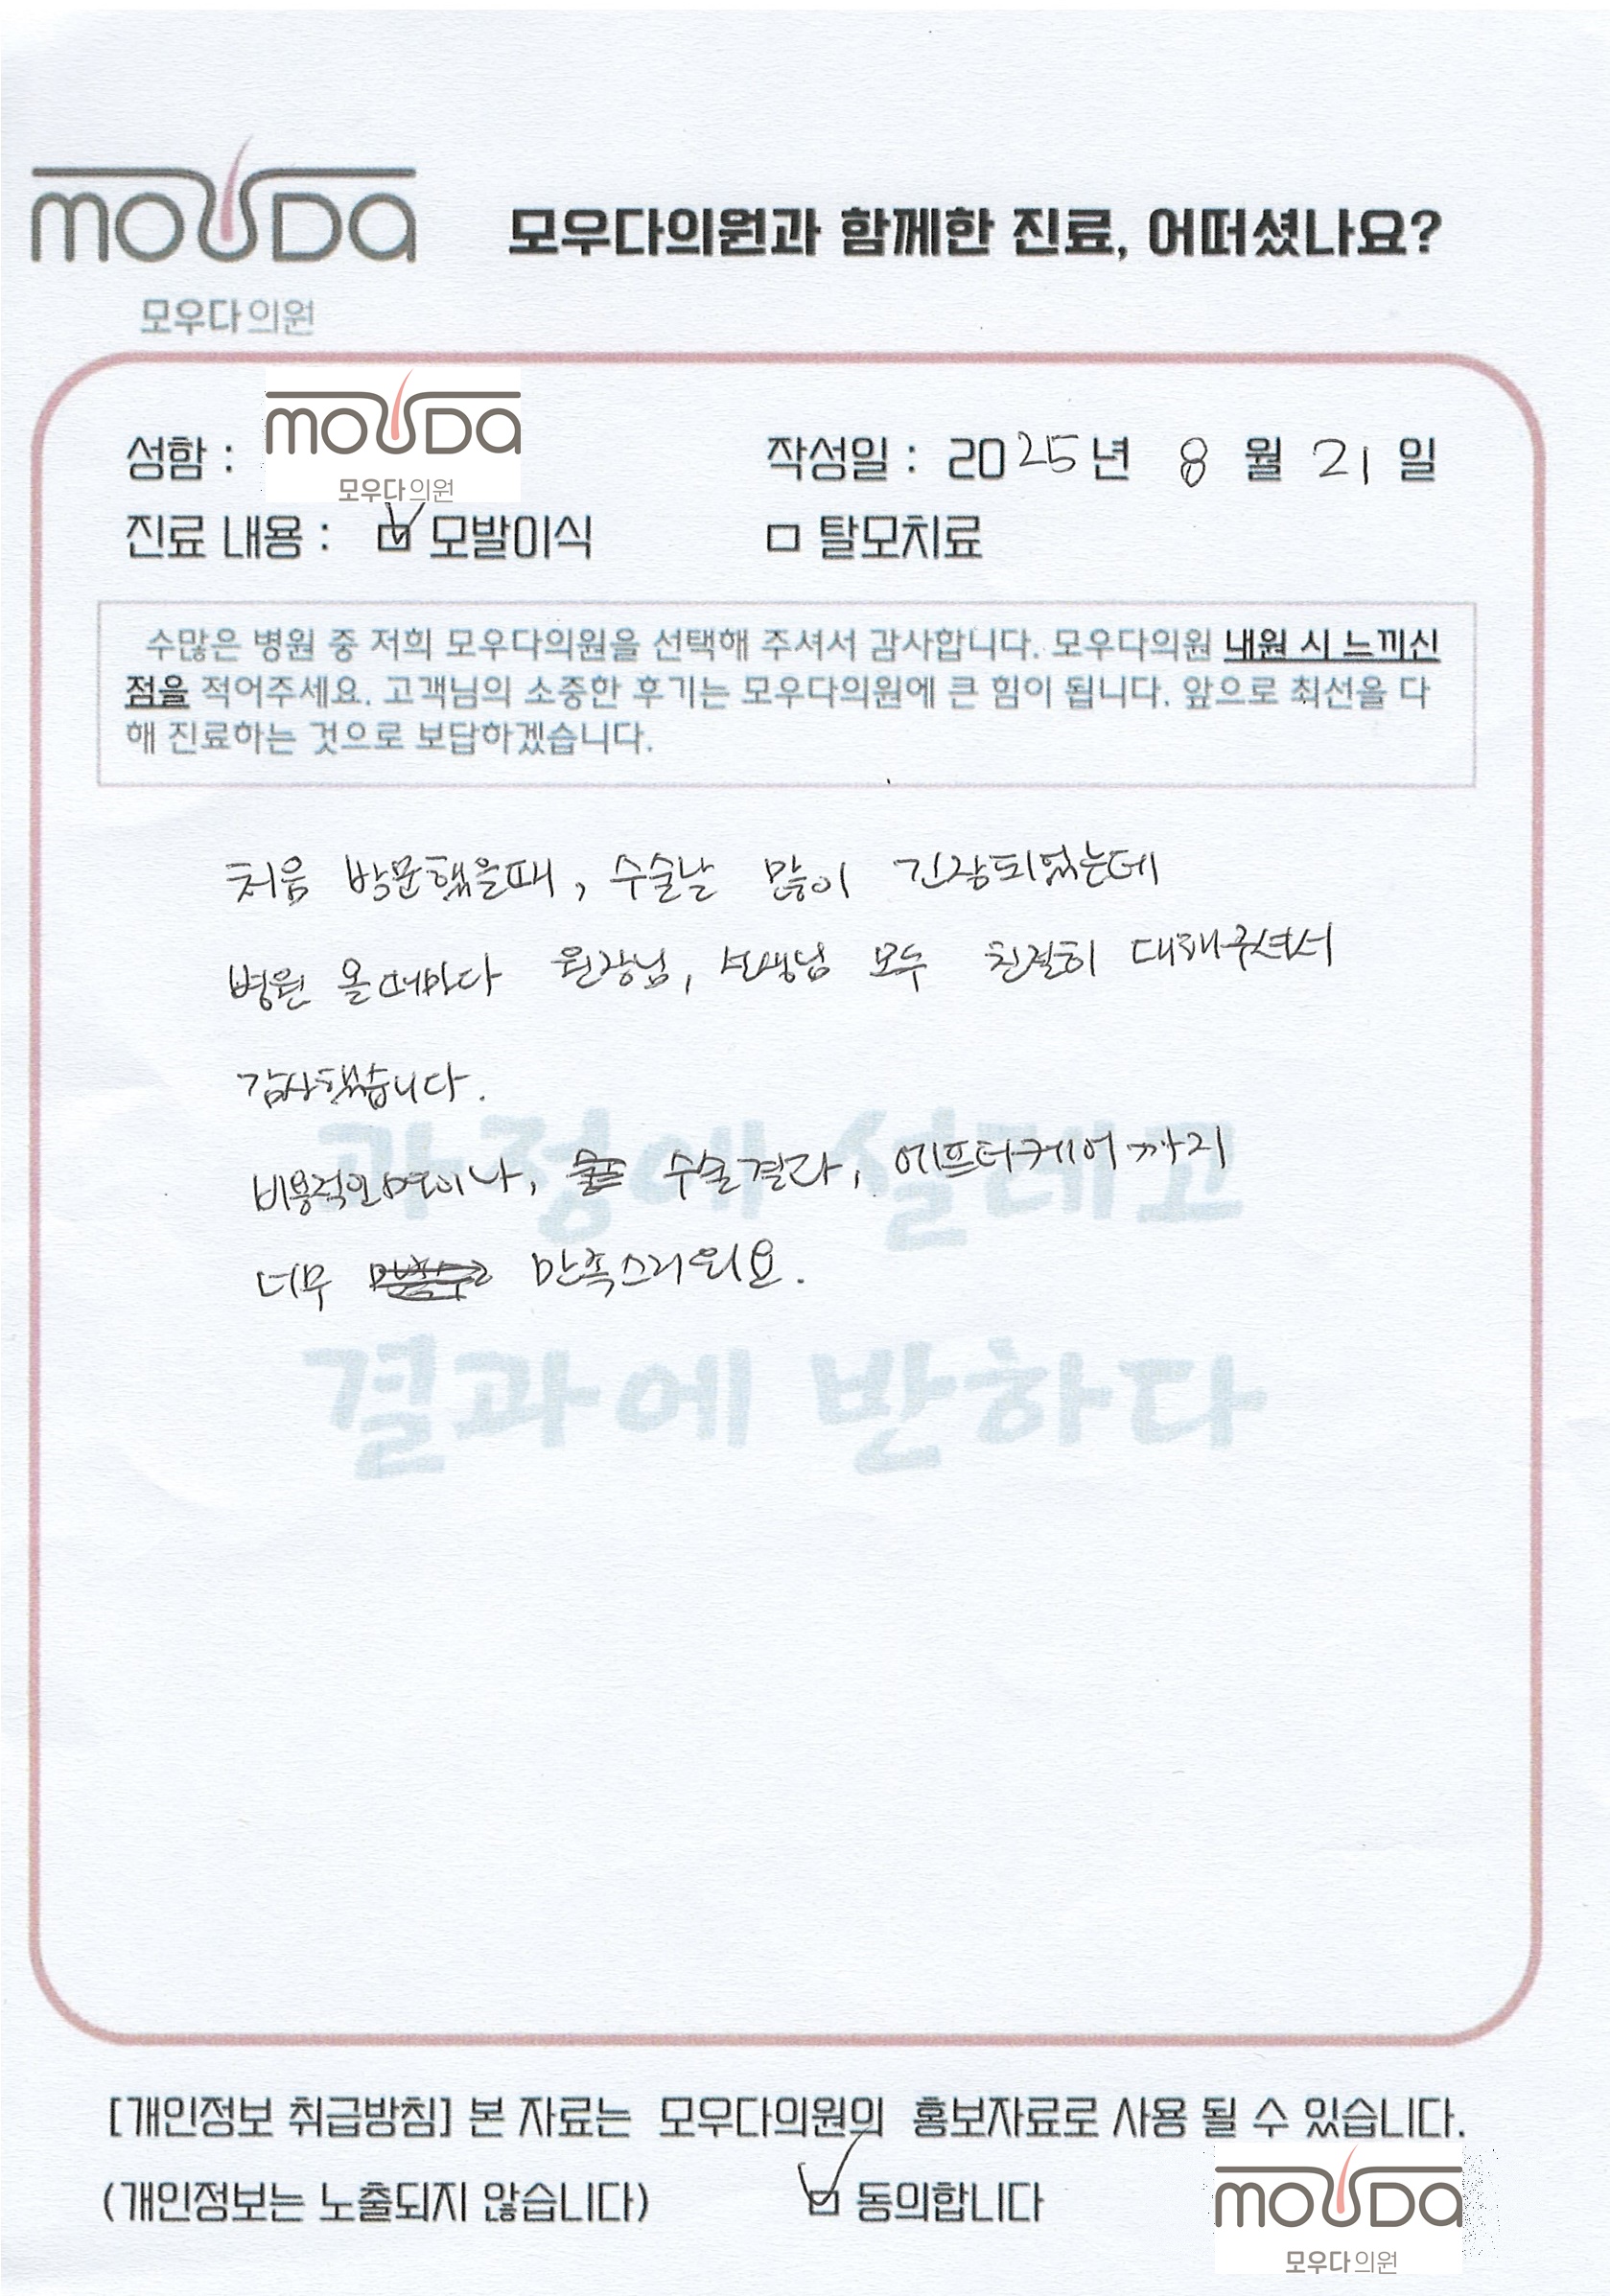 mouDa
모우다의원과 함께한 진료, 어떠셨나요?
모우다의원
성함 : mouDa 작성일 : 2025년 8월 21일
모우다의원
진료 내용 : 모발이식 탈모치료
수많은 병원 중 저희 모우다의원을 선택해 주셔서 감사합니다. 모우다의원 내원 시 느끼신
점을 적어주세요. 고객님의 소중한 후기는 모우다의원에 큰 힘이 됩니다. 앞으로 최선을 다
해 진료하는 것으로 보답하겠습니다.
처음 방문했을때, 수술날 많이 긴장되었는데
병원 올때마다 원장님, 선생님 모두 친절히 대해주셔서
감사했습니다.
과정에 설레고
비용적인면이나, 수술결과, 에프터케어까지
너무 만족스러워요.
결과에 반하다
[개인정보 취급방침] 본 자료는 모우다의원의 홍보자료로 사용 될 수 있습니다.
(개인정보는 노출되지 않습니다) 동의합니다
mouDa
모우다의원